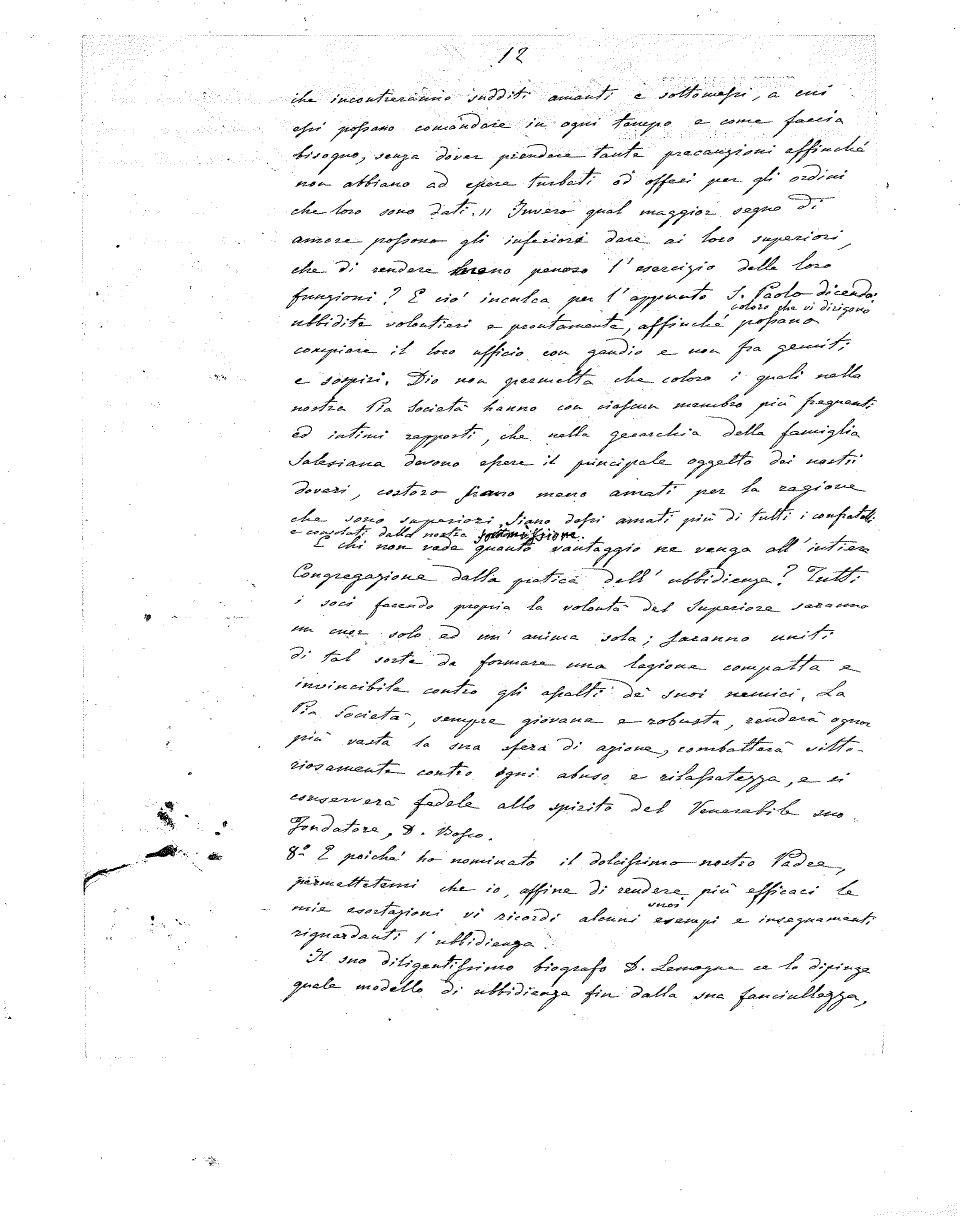 12
che incontreranno sudditi amanti e sottomessi, a cui
essi possano comandare in ogni tempo e come faccia
bisogno, senza dover prendere tante precauzioni affinché
non abbiano ad essere turbati od offesi per gli ordini
che loro sono dati. " Invero qual maggior segno di
amore possono gli inferiori dare ai loro superiori,
che di rendere meno penoso l'esercizio delle loro
funzioni? E ciò inculca per l'appunto S. Paolo dicendo:
coloro che vi dirigono
ubbidite volentieri e prontamente, affinché possano
compiere il loro ufficio con gaudio e non fra gemiti
e sospiri. Dio non permetta che coloro i quali nella
nostra Pia Società hanno con ciascun membro più frequenti
ed intimi rapporti, che nella gerarchia della famiglia
Salesiana devono essere il principale oggetto dei nostri
doveri, costoro siano meno amati per la ragione
che sono superiori. Siano dessi amati più di tutti i confratelli
e consolati dalla nostra sottomissione.
E chi non vede quanto vantaggio ne venga all'intiera
Congregazione dalla pratica dell'ubbidienza? Tutti
i soci facendo propria la volontà del Superiore saranno
un cuor solo ed un'anima sola; saranno uniti
di tal sorta da formare una legione compatta e
invincibile contro gli assalti de' suoi nemici. La
Pia Società, sempre giovane e robusta, renderà ognor
più vasta la sua sfera di azione, combatterà vitto-
riosamente contro ogni abuso e rilassatezza, e si
conserverà fedele allo spirito del Venerabile suo
Fondatore, D. Bosco.
8.° E poiché ho nominato il dolcissimo nostro Padre,
permettetemi che io, affine di rendere più efficaci le
suoi
mie esortazioni vi ricordi alcuni esempi e insegnamenti
riguardanti l'ubbidienza.
Il suo diligentissimo biografo D. Lemoyne ce lo dipinge
quale modello di ubbidienza fin dalla sua fanciullezza,